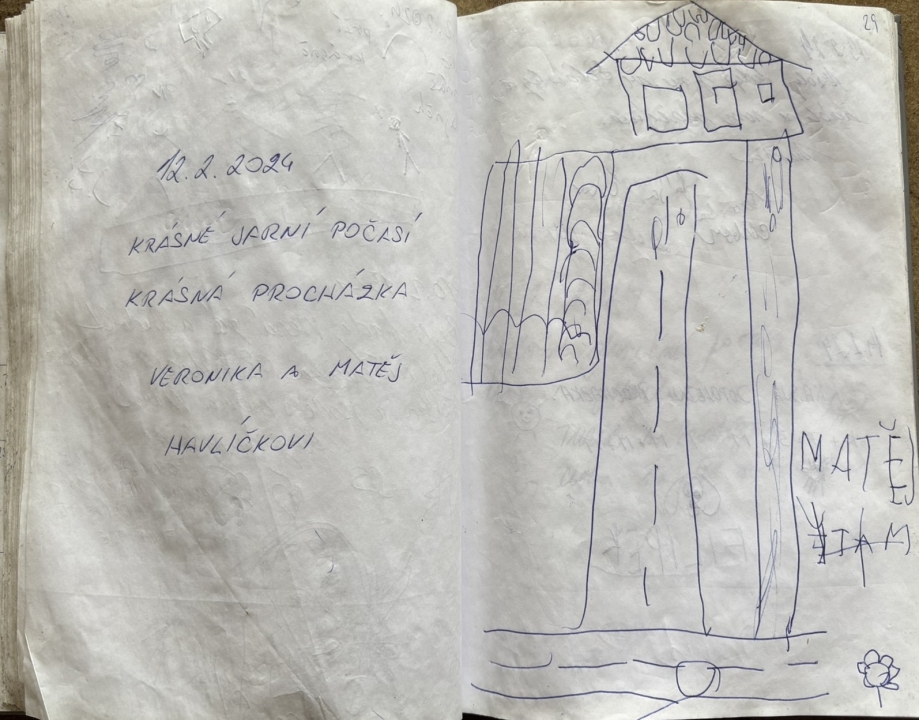 12.2.2024
KRÁSNÉ JARNÍ POČASÍ
KRÁSNÁ PROCHÁZKA
VERONIKA A MATĚJ
HAVLÍČKOVI
29
MATĚJ